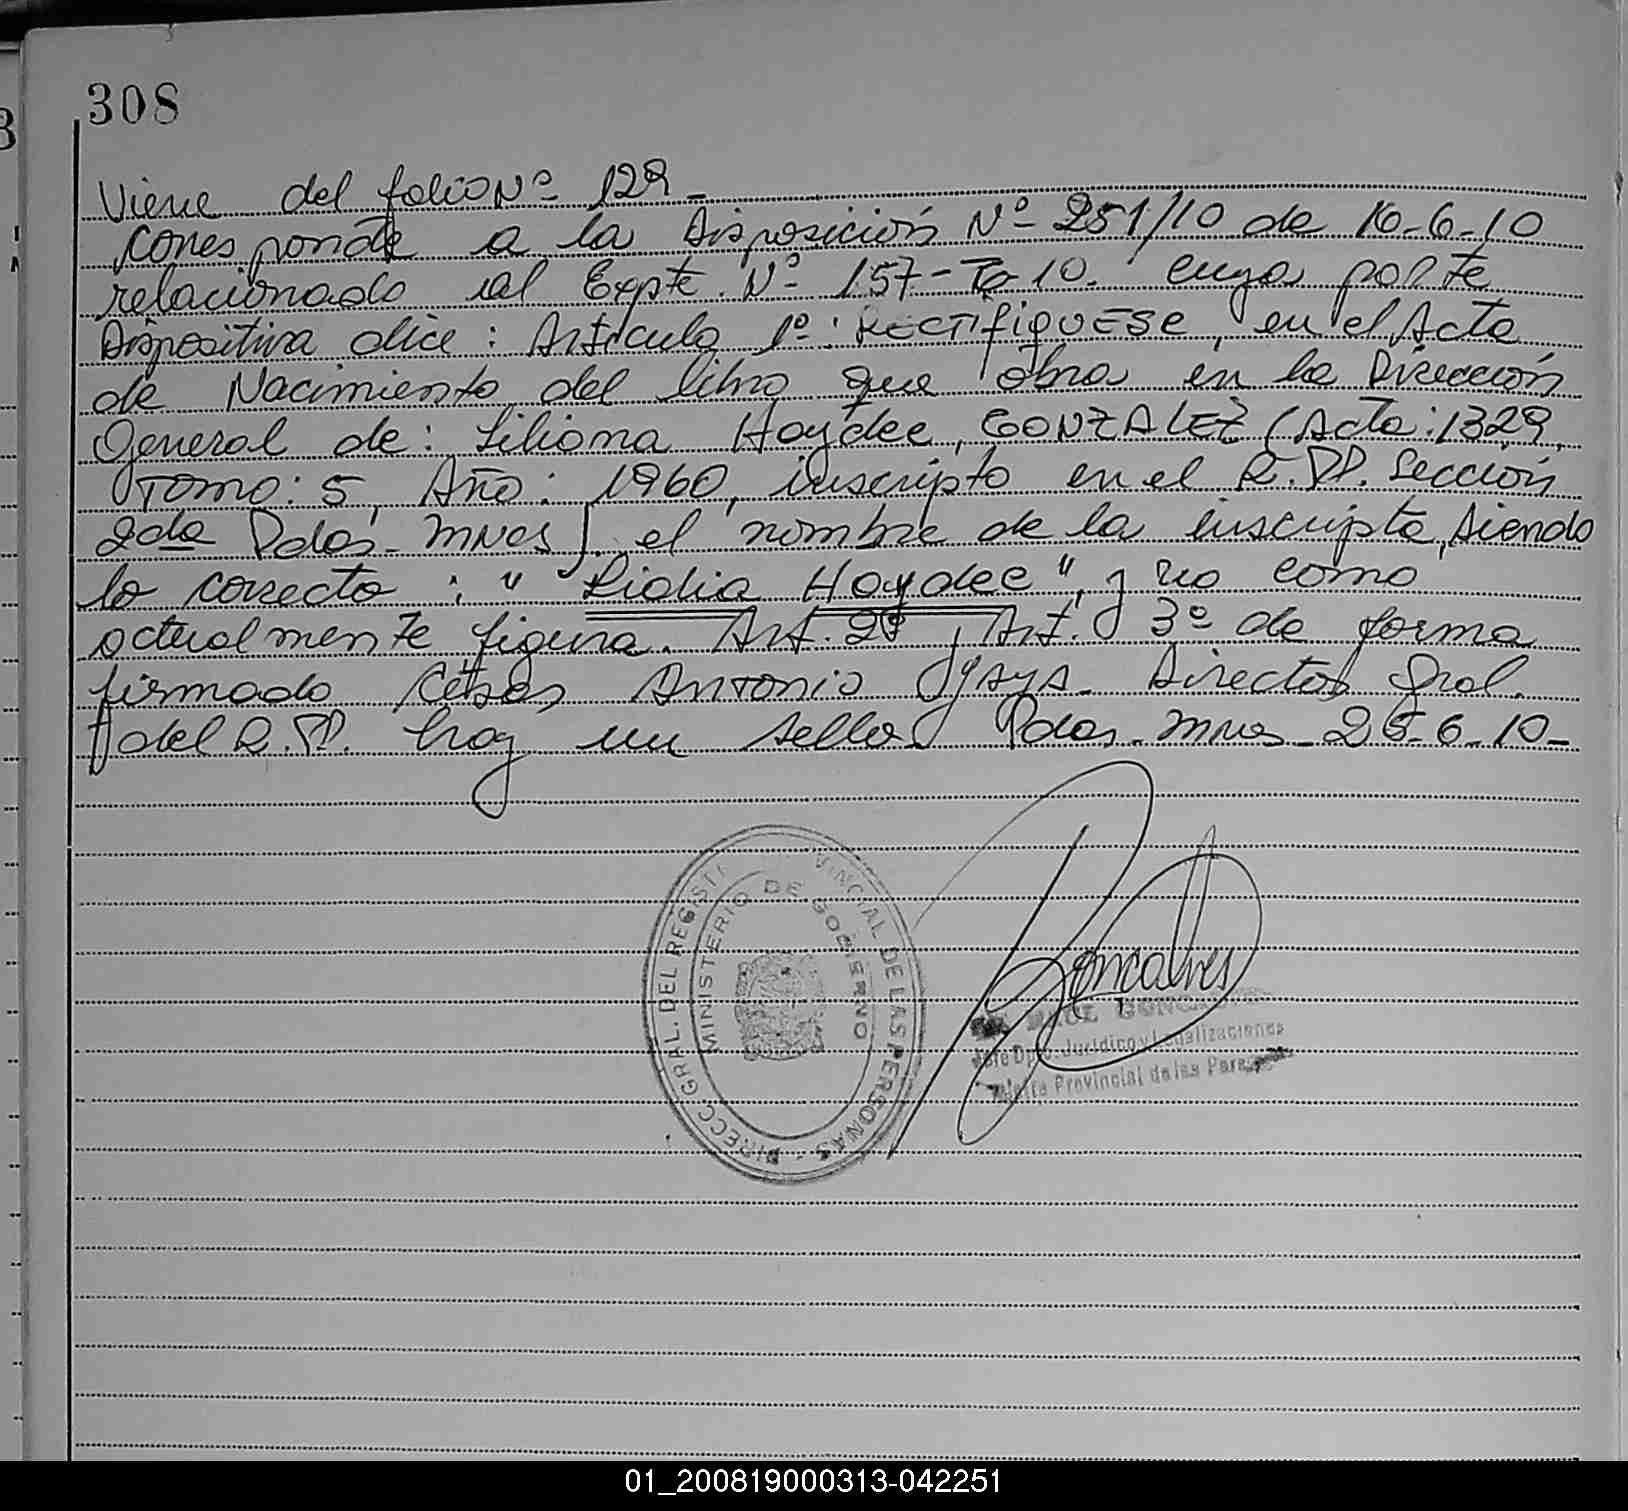 308
Viene del folio Nº 129_
corresponde a la Disposición Nº 251/10 de 16-6-10
relacionado al Expte. Nº 157-To-10. cuya parte
Dispositiva dice: Artículo 1º: RECTIFIQUESE, en el Acta
de Nacimiento del libro que obra en la Dirección
General de: Liliana Haydee, GONZALEZ (Acta: 1329,
Tomo: 5, Año: 1960, inscripto en el R.PP. Sección
2da Pdas. Mnes). el nombre de la inscripta, siendo
lo correcto: " Lidia Haydee", y no como
actualmente figura. Art. 2º y Art. 3º de forma
firmado César Antonio Director Gral.
del R.PP. hay un sello. Pdas. Mnes_ 25-6-10_
DIRECC. GRAL. DEL REGISTR VINCIAL DE LAS PERSONAS
MINISTERIO DE GOBIERNO
Goncalves
RAUL GONC
Jefe Dpto. Jurídico y Legalizaciones
Provincial de las Pers
01_200819000313-042251